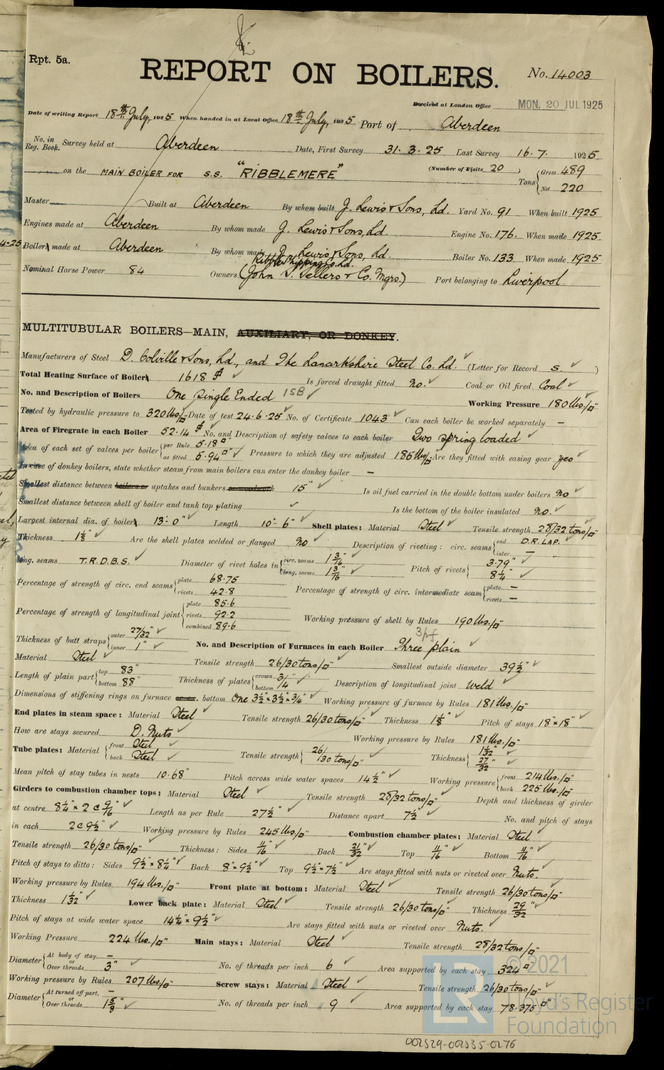 Rpt. 5a.
REPORT ON BOILERS.
No. 14003
Received at London Office MON. 20 JUL 1925
Date of writing Report 18th July, 1925 When handed in at Local Office 18th July, 1925 Port of Aberdeen
No. in Reg. Book. Survey held at Aberdeen Date, First Survey 31.3.25 Last Survey 16.7. 1925
on the MAIN BOILER FOR S.S. "RIBBLEMERE" (Number of Visits 20) Tons Gross 489 Net 220
Master Built at Aberdeen By whom built J. Lewis & Sons, Ld. Yard No. 91 When built 1925
Engines made at Aberdeen By whom made J. Lewis & Sons, Ld Engine No. 176 When made 1925
Boilers made at Aberdeen By whom made J. Lewis & Sons, Ld Boiler No. 133 When made 1925
Nominal Horse Power 84 Owners (John S. Sellers & Co. Mgrs.) Port belonging to Liverpool
MULTITUBULAR BOILERS—MAIN, AUXILIARY, OR DONKEY.
Manufacturers of Steel D. Colville & Sons, Ld., and The Lanarkshire Steel Co. Ld. (Letter for Record S.)
Total Heating Surface of Boilers 1618 Is forced draught fitted No. Coal or Oil fired Coal
No. and Description of Boilers One Single Ended 1SB Working Pressure 180 lbs/□"
Tested by hydraulic pressure to 320 lbs/□" Date of test 24.6.25 No. of Certificate 1043 Can each boiler be worked separately —
Area of Firegrate in each Boiler 52.14 No. and Description of safety valves to each boiler Two spring loaded
Area of each set of valves per boiler per Rule 5.18 as fitted 5.94 Pressure to which they are adjusted 185 lbs/□" Are they fitted with easing gear yes
In case of donkey boilers, state whether steam from main boilers can enter the donkey boiler —
Smallest distance between boilers or uptakes and bunkers 15" Is oil fuel carried in the double bottom under boilers No
Smallest distance between shell of boiler and tank top plating Is the bottom of the boiler insulated No.
Largest internal dia. of boilers 13'-0" Length 10'-6" Shell plates: Material Steel Tensile strength 28/32 tons/□"
Thickness Are the shell plates welded or flanged No Description of riveting: circ. seams end D.R. LAP. inter. —
long. seams T.R.D.B.S. Diameter of rivet holes in circ. seams 1 3/16 long. seams 1 3/16 Pitch of rivets 3.79" 8 1/4"
Percentage of strength of circ. end seams plate 68.75 rivets 42.8 Percentage of strength of circ. intermediate seam plate — rivets —
Percentage of strength of longitudinal joint plate 85.6 rivets 92.2 combined 89.6 Working pressure of shell by Rules 190 lbs/□"
Thickness of butt straps outer 27/32" inner 1" No. and Description of Furnaces in each Boiler Three plain
Material Steel Tensile strength 26/30 tons/□" Smallest outside diameter 39 1/2"
Length of plain part top 83" bottom 88" Thickness of plates crown bottom 3/4" Description of longitudinal joint Weld
Dimensions of stiffening rings on furnace bottom One 3 1/2" × 3 1/2" × 3/4" Working pressure of furnace by Rules 181 lbs/□"
End plates in steam space: Material Steel Tensile strength 26/30 tons/□" Thickness Pitch of stays 18" × 18"
How are stays secured D. Nuts Working pressure by Rules 181 lbs/□"
Tube plates: Material front Steel back Steel Tensile strength 26/30 tons/□" Thickness 1 1/32" 27/32"
Mean pitch of stay tubes in nests 10.68" Pitch across wide water spaces 14 1/2" Working pressure front 214 lbs/□" back 225 lbs/□"
Girders to combustion chamber tops: Material Steel Tensile strength 28/32 tons/□" Depth and thickness of girder
at centre 8 1/4" × 2 @ 9/16" Length as per Rule 27 1/2" Distance apart 7 1/2" No. and pitch of stays
in each 2 @ 9 1/2" Working pressure by Rules 245 lbs/□" Combustion chamber plates: Material Steel
Tensile strength 26/30 tons/□" Thickness: Sides 11/16 Back 21/32 Top 11/16 Bottom 11/16
Pitch of stays to ditto: Sides 9 1/2" × 8 1/4" Back 8" × 9 1/2" Top 9 1/2" × 7 1/2" Are stays fitted with nuts or riveted over Nuts.
Working pressure by Rules 194 lbs/□" Front plate at bottom: Material Steel Tensile strength 26/30 tons/□"
Thickness 1 1/32" Lower back plate: Material Steel Tensile strength 26/30 tons/□" Thickness 29/32
Pitch of stays at wide water space 14 1/4" × 9 1/2" Are stays fitted with nuts or riveted over Nuts.
Working Pressure 224 lbs/□" Main stays: Material Steel Tensile strength 28/32 tons/□"
Diameter At body of stay, — or Over threads 3" No. of threads per inch 6 Area supported by each stay 324
Working pressure by Rules 207 lbs/□" Screw stays: Material Steel Tensile strength 26/30 tons/□"
Diameter At turned off part, — or Over threads 1 5/8" No. of threads per inch 9 Area supported by each stay 78.375
© 2021
LR Lloyd's Register
Foundation
002329-002335-0276